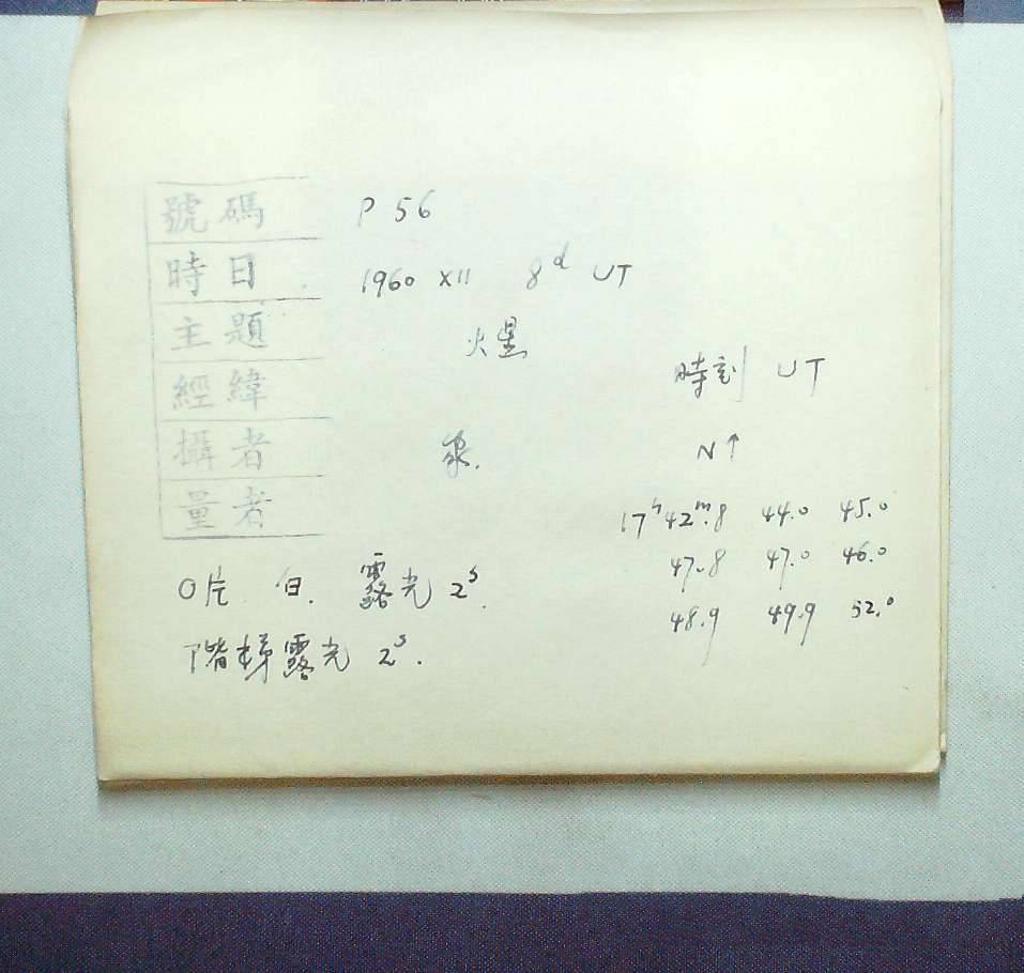 號碼 P 56
時日 1960 XII 8d UT
主題 火星
經緯 時刻 UT
攝者 N↑
量者 17h42m.8 44.0 45.0
47.8 47.0 46.0
O片 白. 露光 2s. 48.9 49.9 52.0
階梯露光 2s.